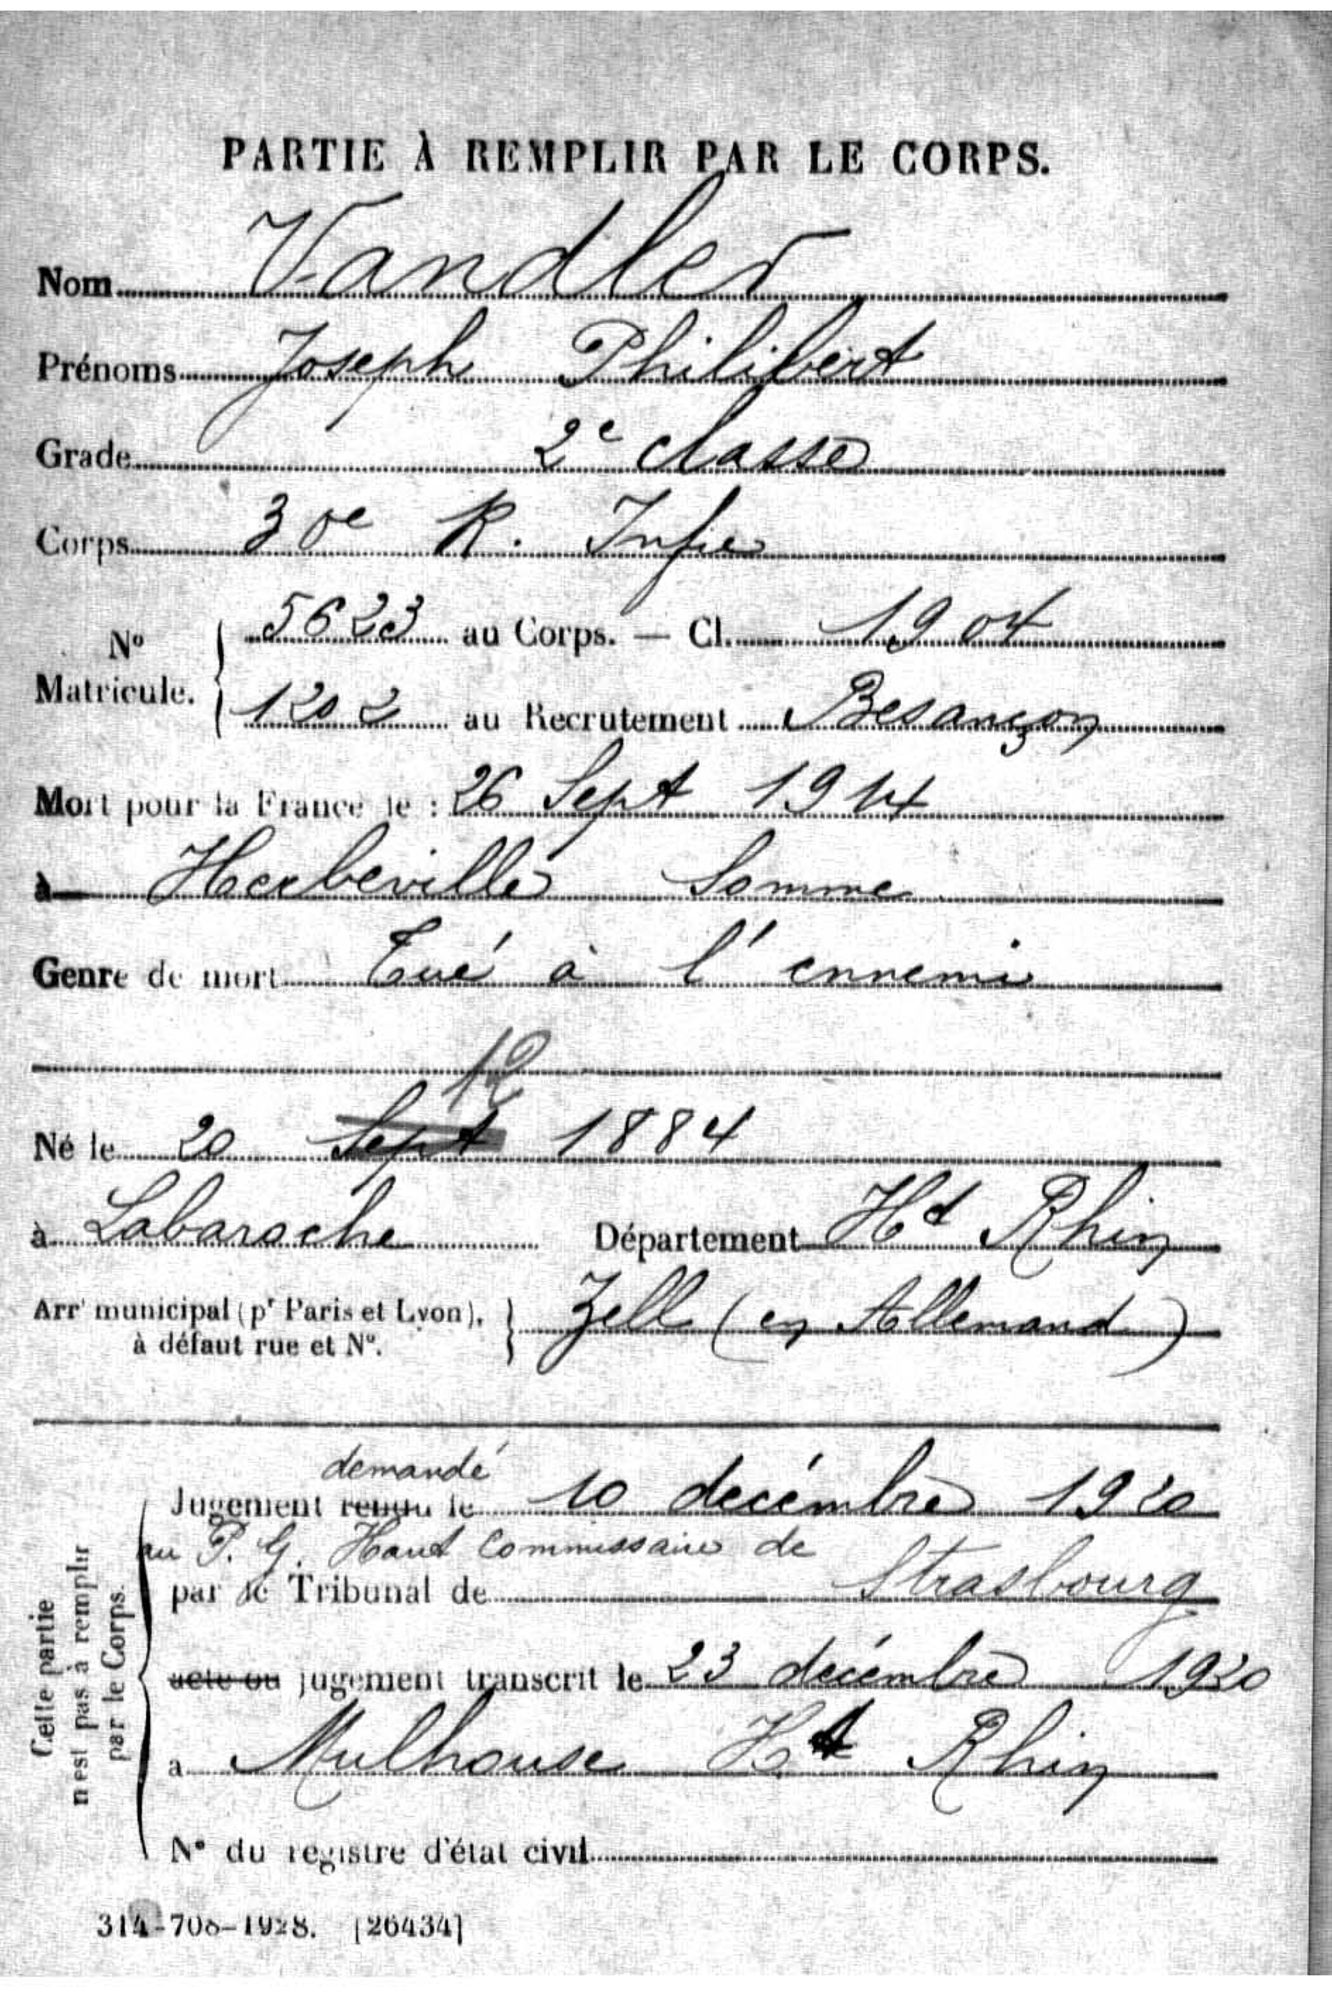 PARTIE À REMPLIR PAR LE CORPS.
Nom Vandler
Prénoms Joseph Philibert
Grade 2e classe
Corps 30e R. Infie
No Matricule. { 5623 au Corps. — Cl. 1904
1202 au Recrutement Besançon
Mort pour la France le : 26 Sept 1914
à Herbeville Somme
Genre de mort Tué à l'ennemi
12
Né le 20 Sept 1884
à Labaroche Département Ht Rhin
Arrt municipal (pr Paris et Lyon), à défaut rue et No. } Zell (en Allemand)
demandé
Jugement rendu le 10 decémbre 1920
au P. G. Haut Commissaire de
par le Tribunal de Strasbourg
acte ou jugement transcrit le 23 decémbre 1920
à Mulhouse Ht Rhin
No du registre d'état civil
Cette partie
n'est pas à remplir
par le Corps.
314-708-1928. [26434]